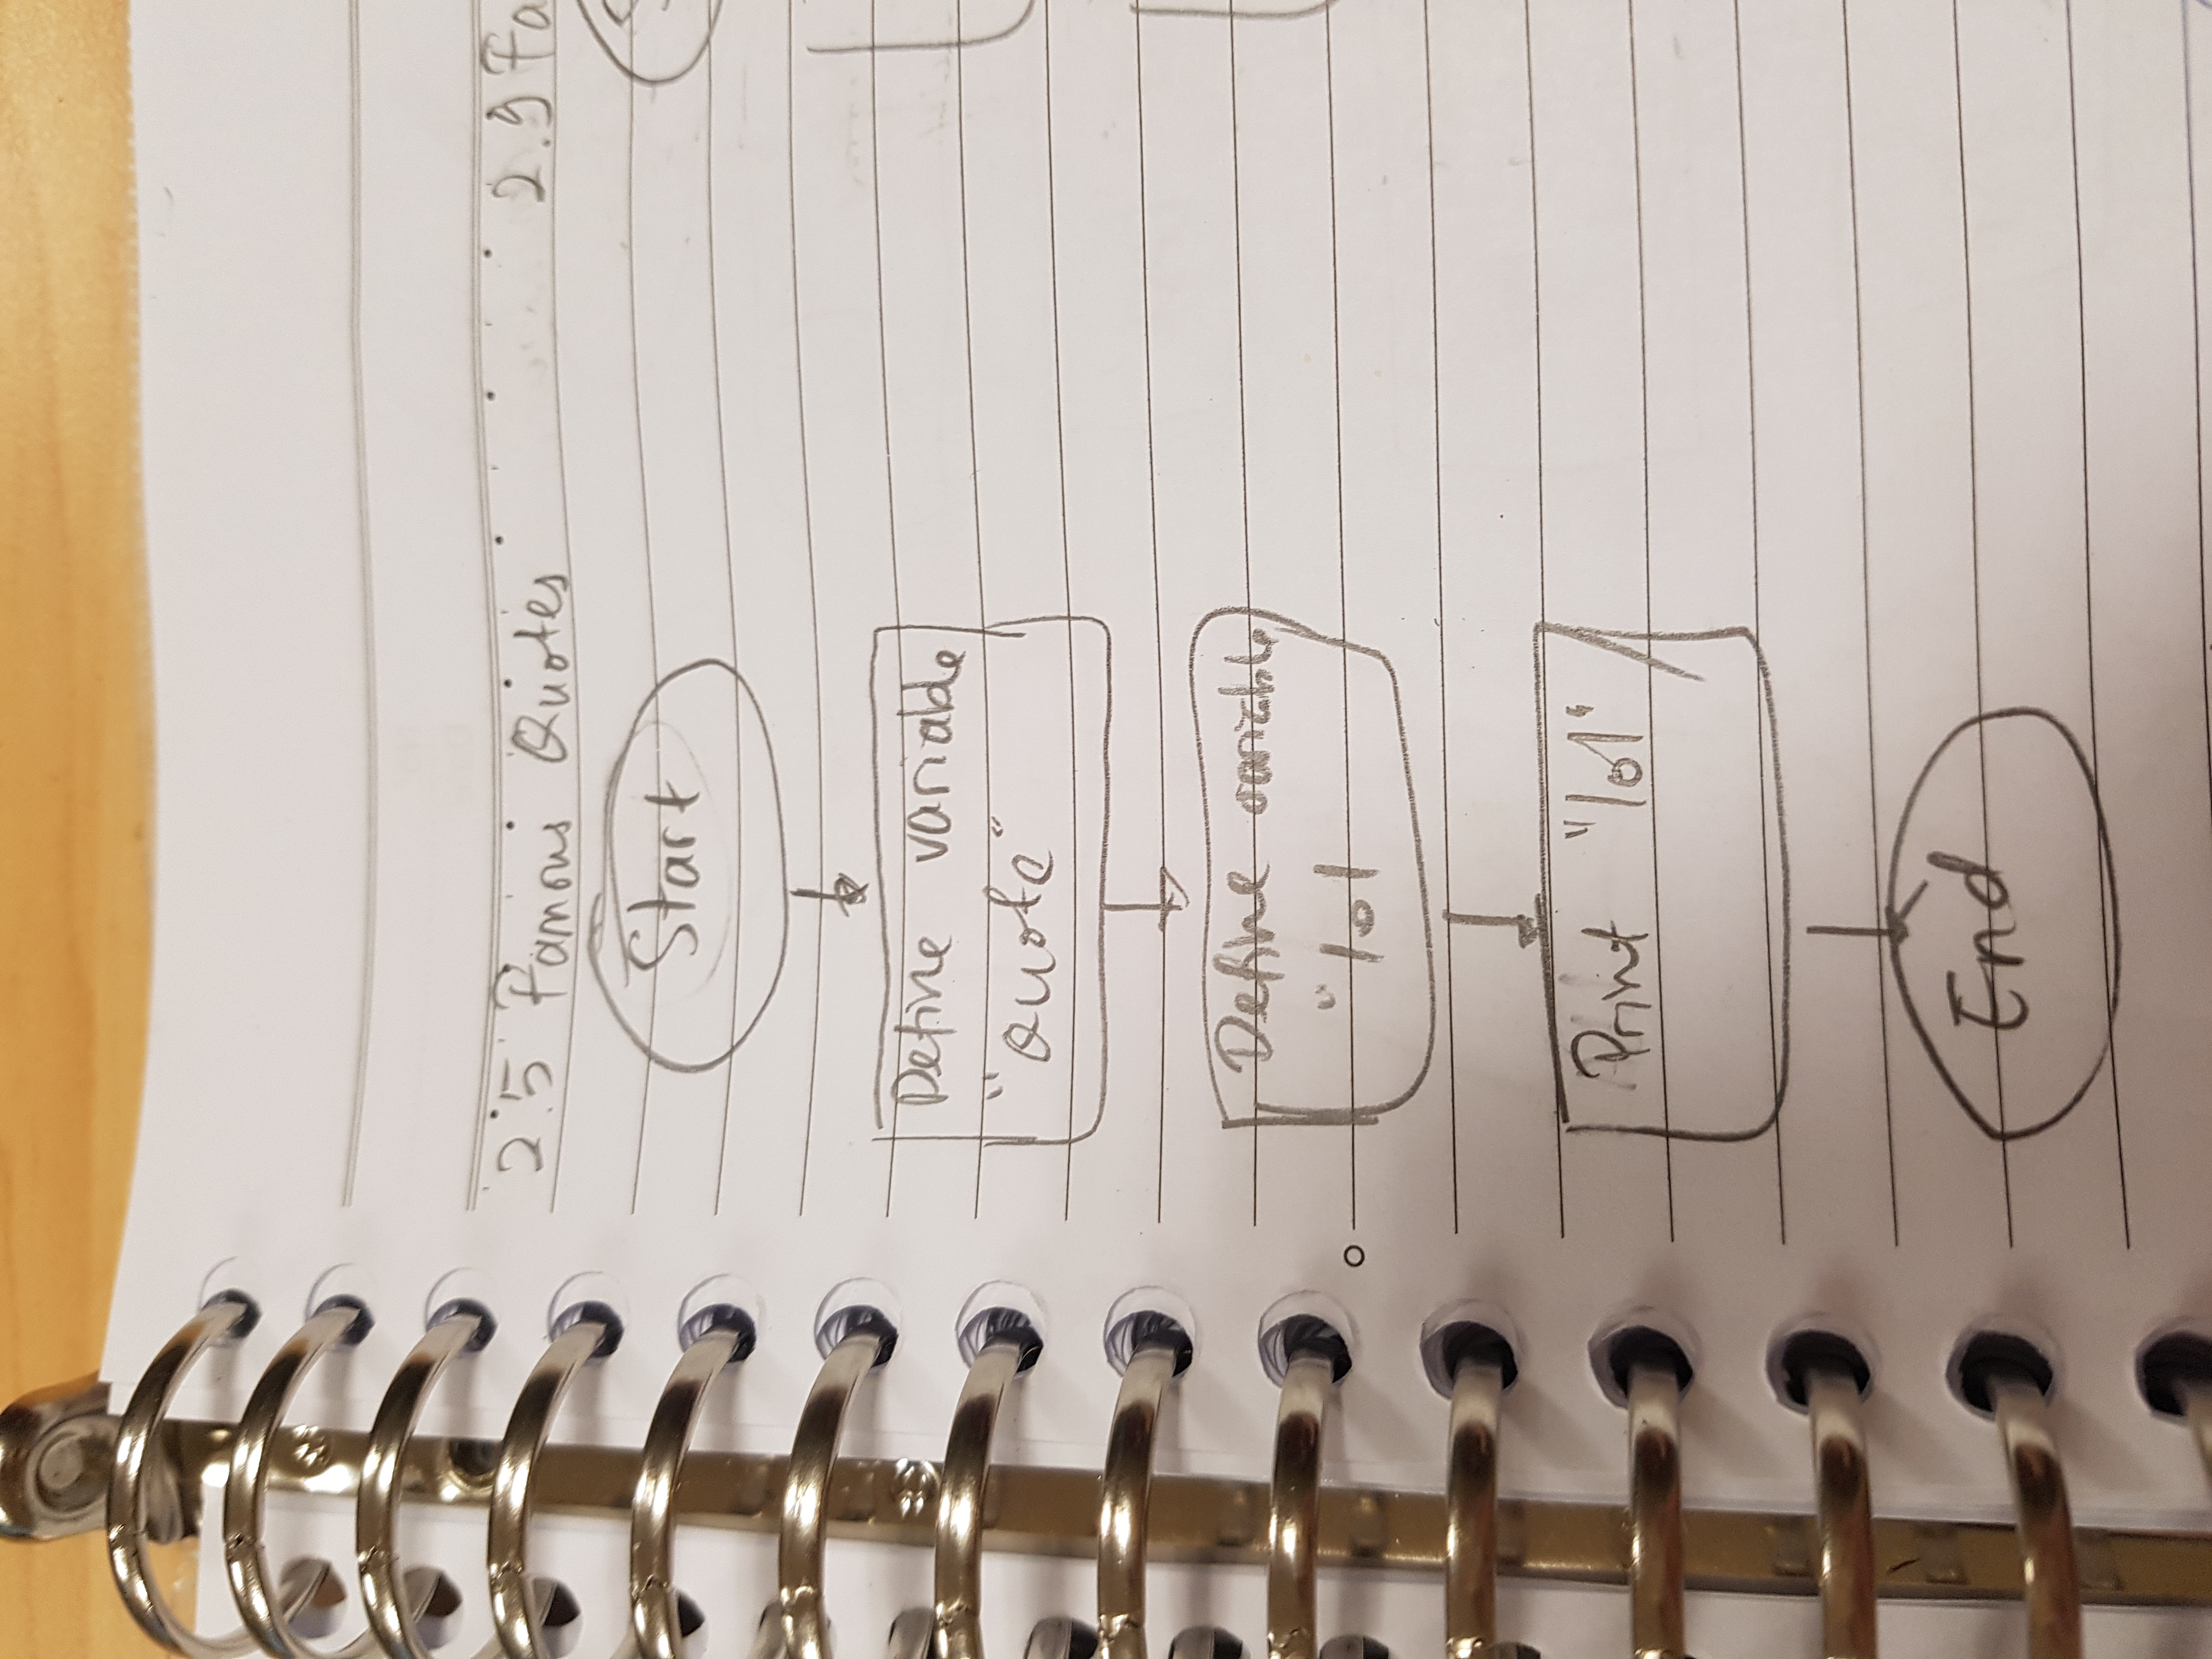 2.5 Famous Quotes
2.9 Fa
Start
S
Define variable
"Quote"
Define variable
"lol
Print "lol"
End